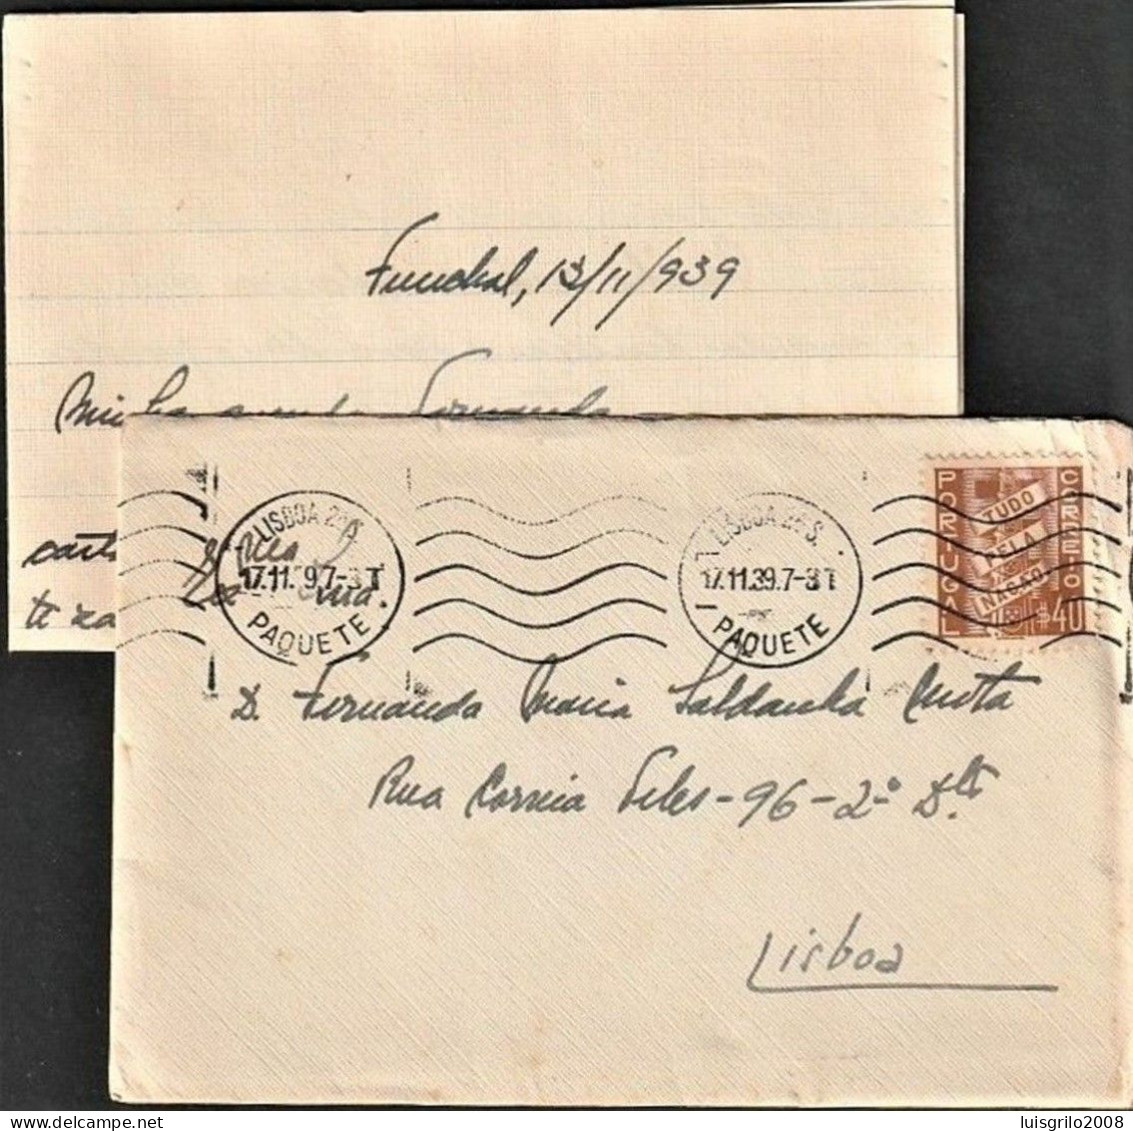 Funchal, 13/11/939
Minha Fernanda
te
LISBOA
17.11.39.7-3T
PAQUETE
LISBOA 2ª S.
17.11.39.7-3T
PAQUETE
PORTUGAL
CORREIO
TUDO
PELA
NAÇÃO
$40
D. Fernanda Maria Saldanha Mota
Rua Correia Teles - 96 - 2º Dtº
Lisboa
luisgrilo2008